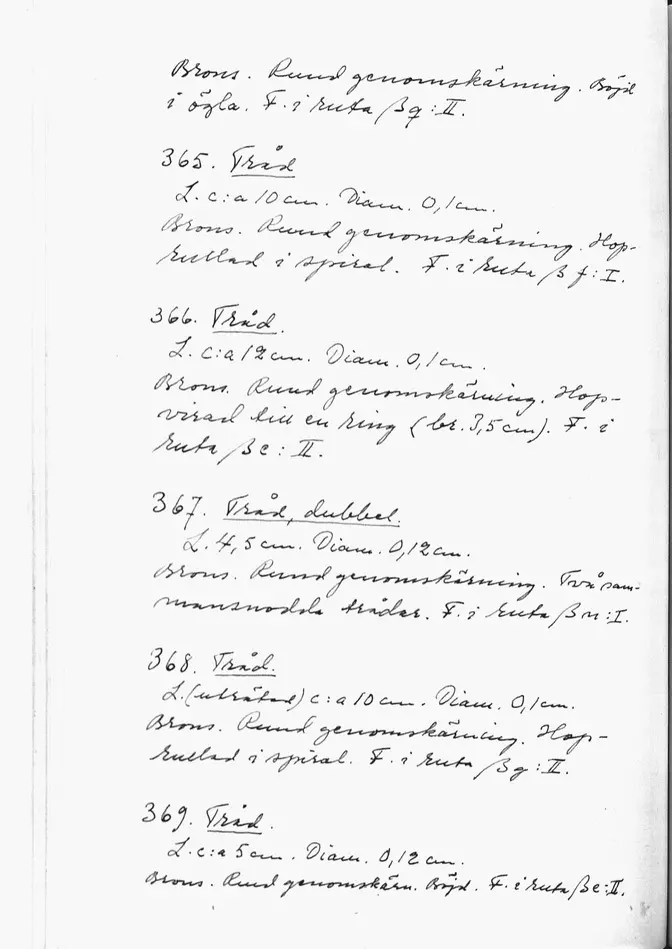 Brons. Rund genomskärning. Böjd
i ögla. F. i ruta βq:II.
365. Tråd
L. c:a 10 cm. Diam. 0,1 cm.
Brons. Rund genomskärning. Hop-
rullad i spiral. F. i ruta βf:I.
366. Tråd.
L. c:a 12 cm. Diam. 0,1 cm.
Brons. Rund genomskärning. Hop-
virad till en ring (br. 3,5 cm). F. i
ruta βc:II.
367. Tråd, dubbel.
L. 4,5 cm. Diam. 0,12 cm.
Brons. Rund genomskärning. Två sam-
mansnodda trådar. F. i ruta βn:I.
368. Tråd.
L. (uträtad) c:a 10 cm. Diam. 0,1 cm.
Brons. Rund genomskärning. Hop-
rullad i spiral. F. i ruta βg:II.
369. Tråd.
L. c:a 5 cm. Diam. 0,12 cm.
Brons. Rund genomskärn. Böjd. F. i ruta βe:II.